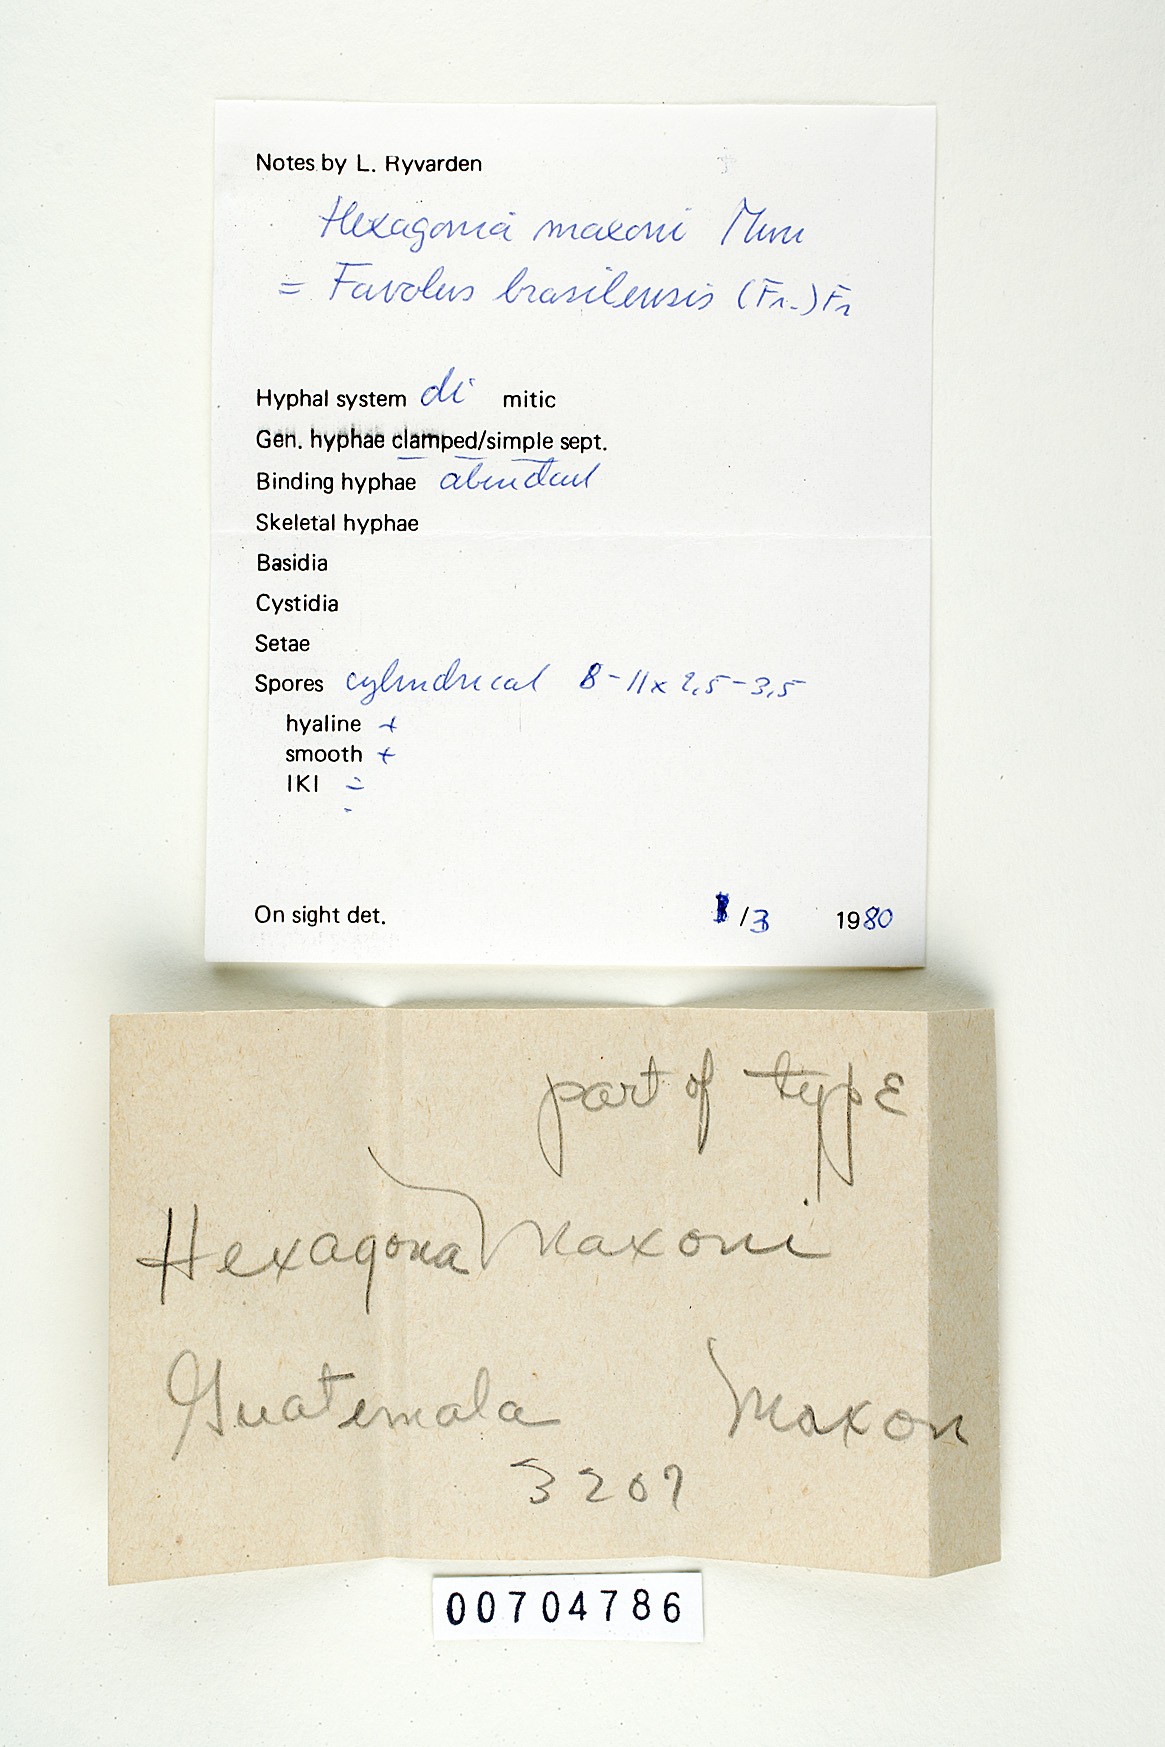 Notes by L. Ryvarden
Hexagonia maxoni Murr
= Favolus brasilensis (Fr.) Fr
Hyphal system di mitic
Gen. hyphae clamped/simple sept.
Binding hyphae abundant
Skeletal hyphae
Basidia
Cystidia
Setae
Spores cylindrical 8-11 x 2,5-3,5
hyaline +
smooth +
IKI -
On sight det. /3 1980
part of type
Hexagona Maxoni
Guatemala Maxon
3207
00704786